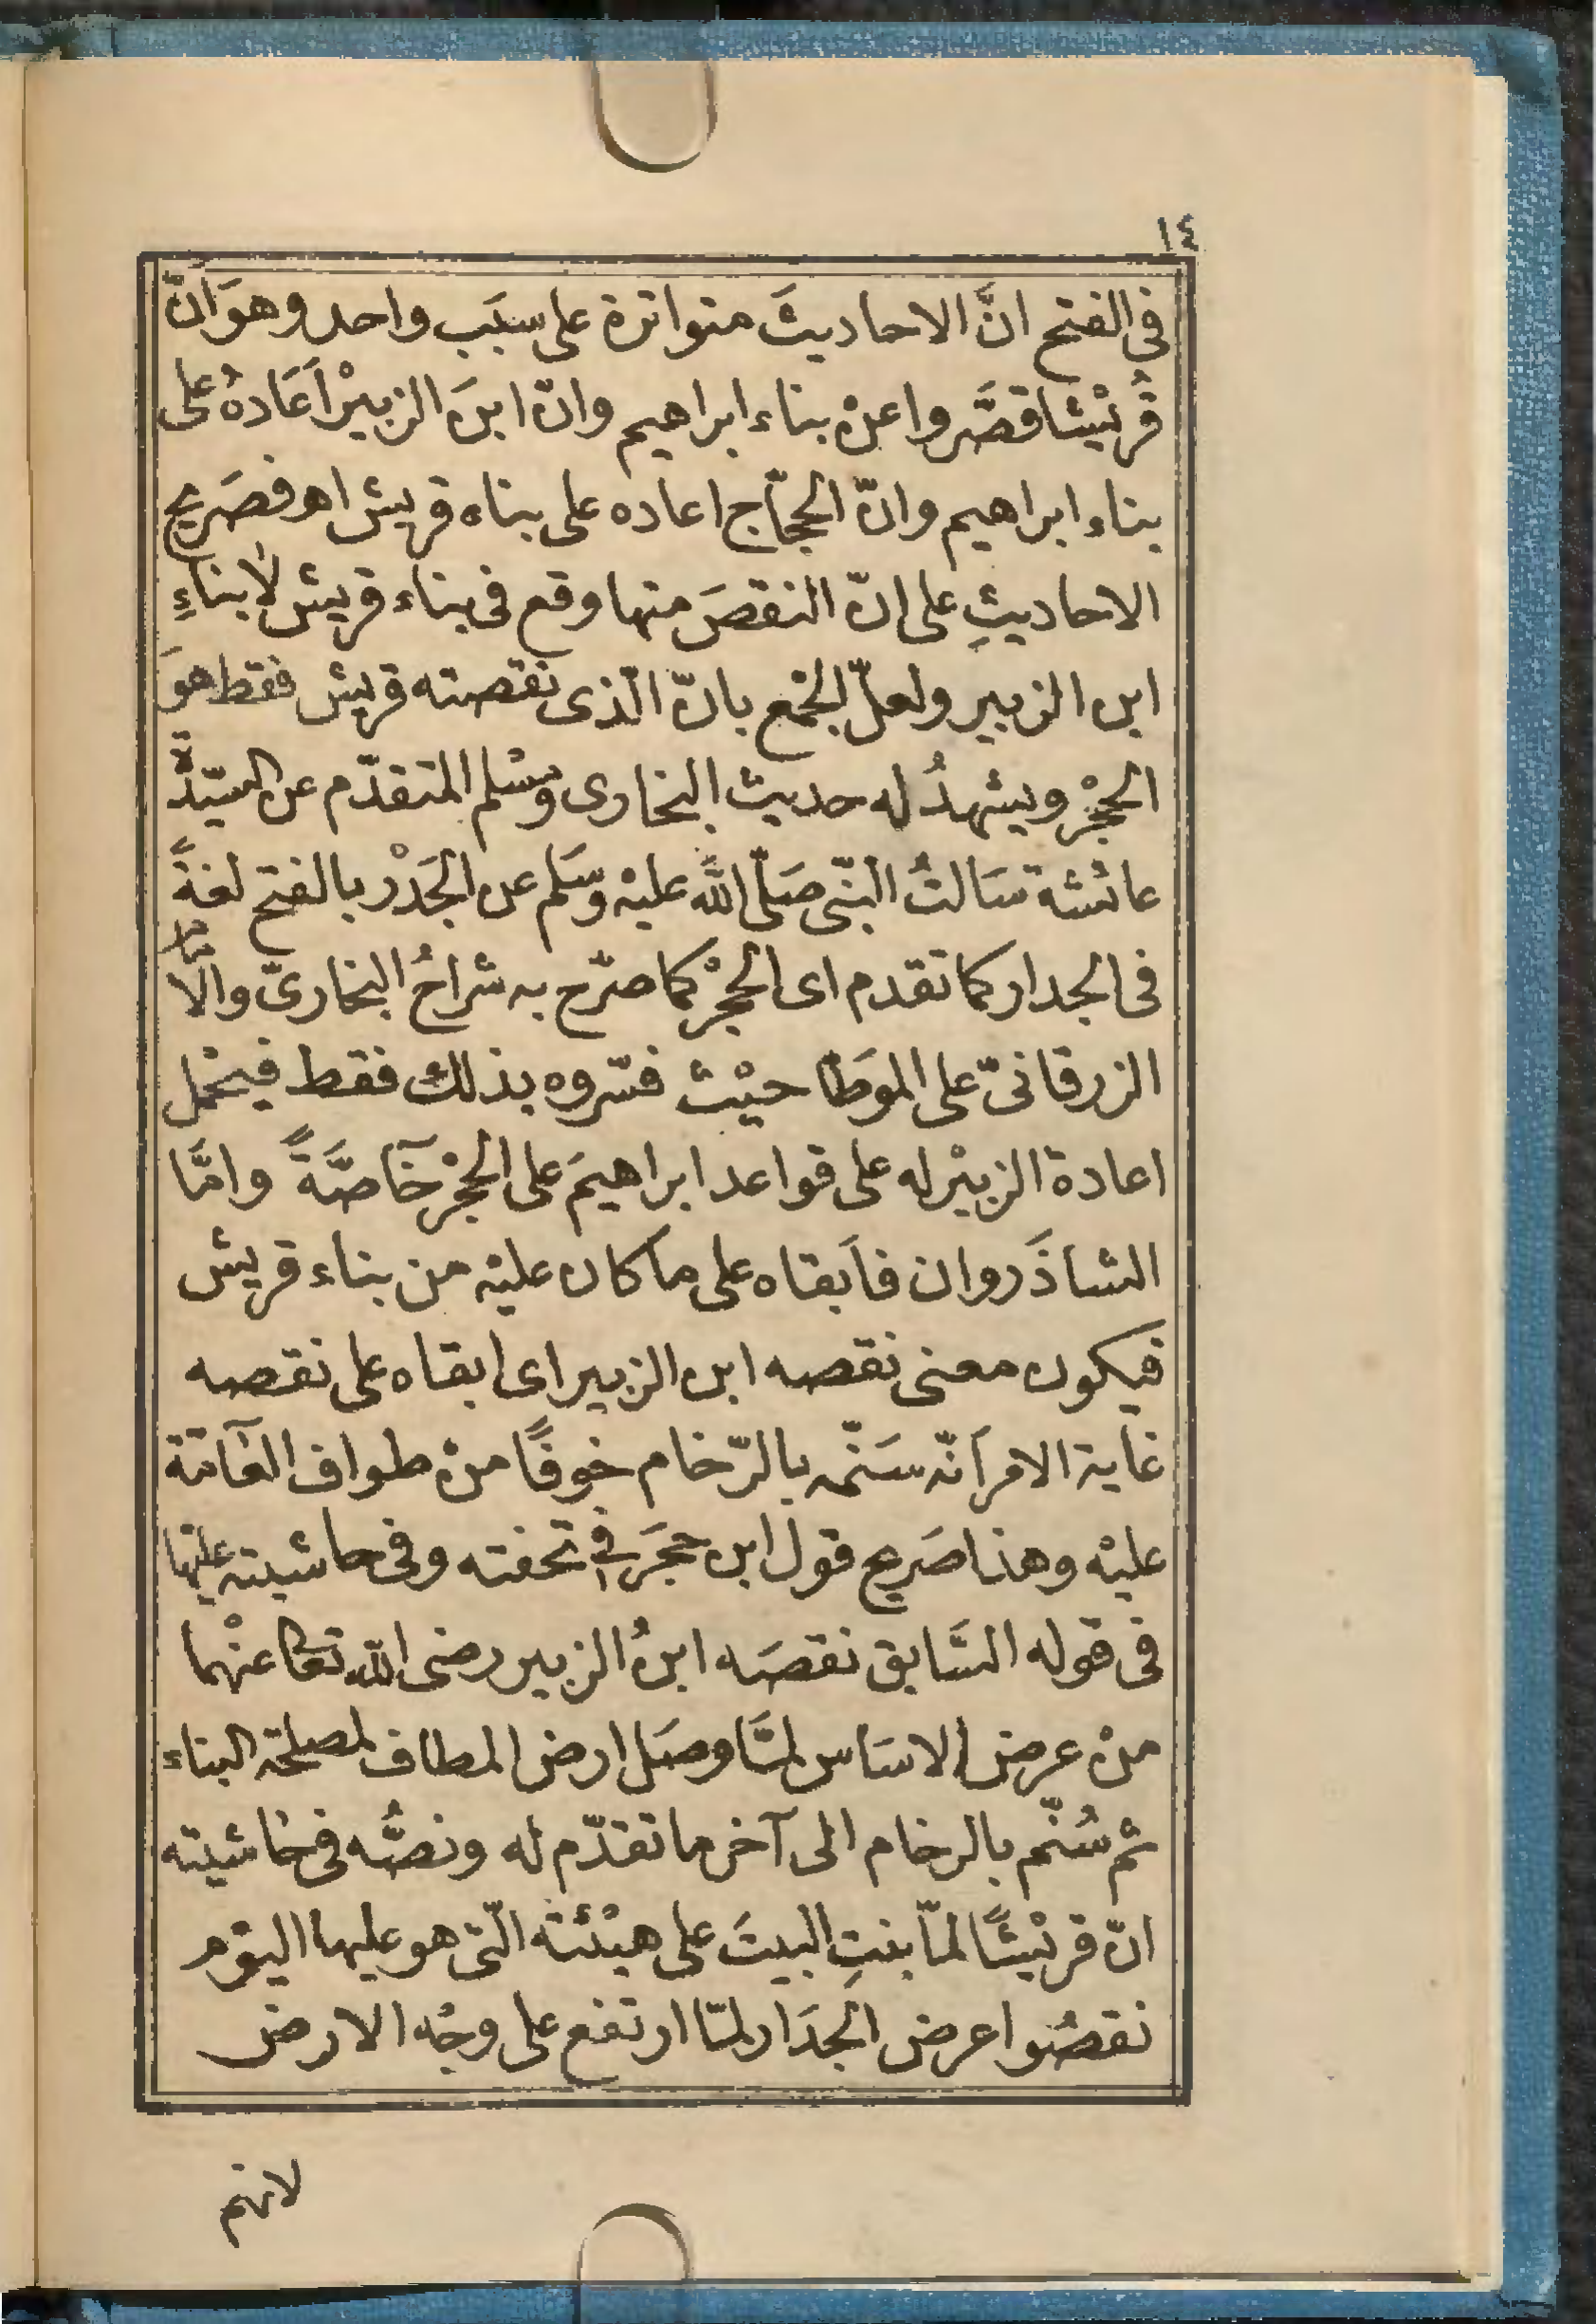 ١٤
فى الفتح انَّ الاحاديثَ متواترة على سبَب واحد وهوَ انّ
قُريْشا قصَّروا عنْ بناء ابراهيم وانّ ابنَ الزبيْر اَعَادهُ على
بناء ابراهيم وانّ الحجّاج اعاده على بناء قريش اهـ فصَريح
الاحاديثِ على انّ النقصَ منها وقع فى بناء قريش لَا بناءِ
ابن الزبير ولعلّ الجَمْع بانّ الّذى نقصته قريش فقط هوَ
الحِجْر ويشهدُ له حديث البخارى ومسْلم المتقدّم عن السّيّدَة
عائشة سَالتُ النّبى صَلّى اللّه عليْه وسَلم عن الجَدْر بالفتح لغةً
فى الجدار كما تقدم اى الحِجْر كما صرّح به شراحُ البخارىّ والامام
الزرقانىّ على الموَطّا حيْث فسّروه بذلك فقط فيحْمل
اعادة الزبيْر له على قواعد ابراهيمَ على الحِجْر خَاصَّةً وامَّا
الشاذَروان فاَبقاه على ما كان عليْه من بناء قريش
فيكون معنى نقصه ابن الزبير اى ابقاه على نقصه
غاية الامر اَنّه سَنّمه بالرّخام خوفًا منْ طواف العَامّة
عليْه وهذا صَريح قول ابن حجَر فى تحفته وفى حاشيته عليْها
فى قوله السَّابق نقصَه ابنُ الزبير رضى اللّه تعالى عنْهما
منْ عرض الاسَاس لمَّا وصَل ارض المطاف لمصلحة البناء
ثم سُنّم بالرخام الى آخر ما تقدّم له ونصُّه فى حَاشيته
انّ قريْشًا لمّا بنتِ البيتَ على هيْئته الّتى هو عليها اليوْم
نقصُوا عرض الجدَار لمّا ارتفع على وجْه الارض
لانهم